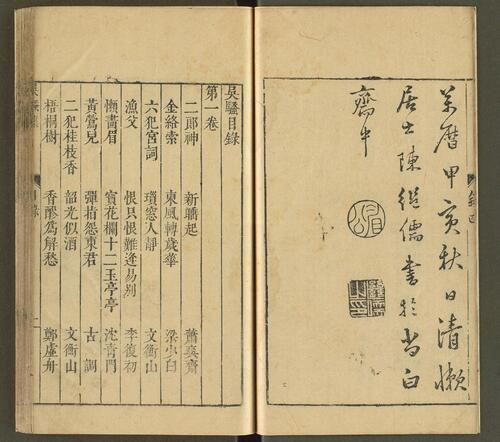 萬曆甲寅秋日清懶
居士陳繼儒書於尚白
齋中
眉公
吳騷目錄
第一卷
二郎神 新 起 蕭爽齋
金絡索 東風轉歲華 梁少白
六犯宮詞 瑣窓人靜 文衡山
漁父 恨只恨難逢易別 李復初
懶畫眉 寳花欄十二玉亭亭 沈青門
黃鶯兒 彈指怨東君 古調
二犯桂枝香 韶光似酒 文衡山
梧桐樹 香醪爲解愁 鄭虛舟